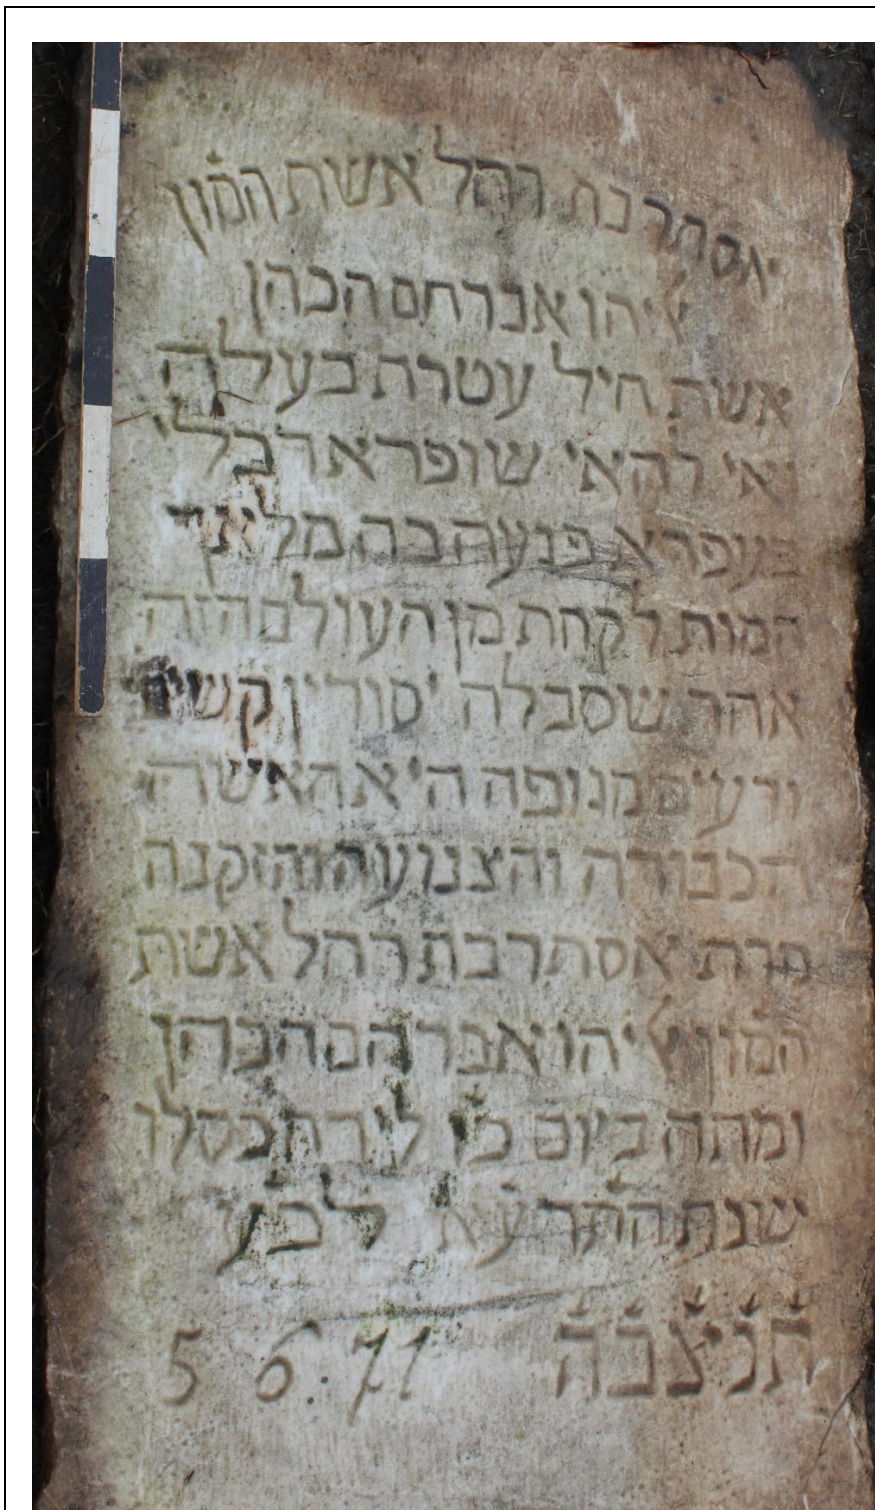 אסתר בת רחל אשת המ'ון
אליהו אברהם הכהן
אשת חיל עטרת בעלה
ואי להאי שופרא דבלי
בעפרא פגעה בה מלאך
המות לקחת מן העולם הזה
אחר שסבלה יסורין קשים
ורעים מגופה היא האשה
הכבודה והצנועה והזקנה
מרת אסתר בת רחל אשת
המ'ון אליהו אברהם הכהן
ומתה ביום לירח כסלו
שנת התרעא לבע
תנצבה 5671